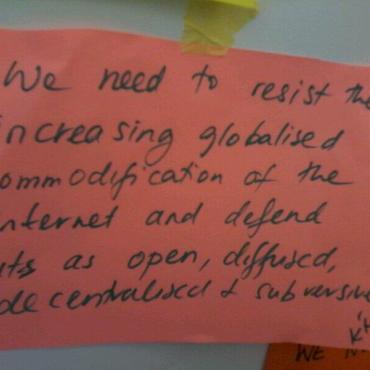 We need to resist the
increasing globalised
commodification of the
internet and defend
its as open, diffused,
decentralised & subversive
WE